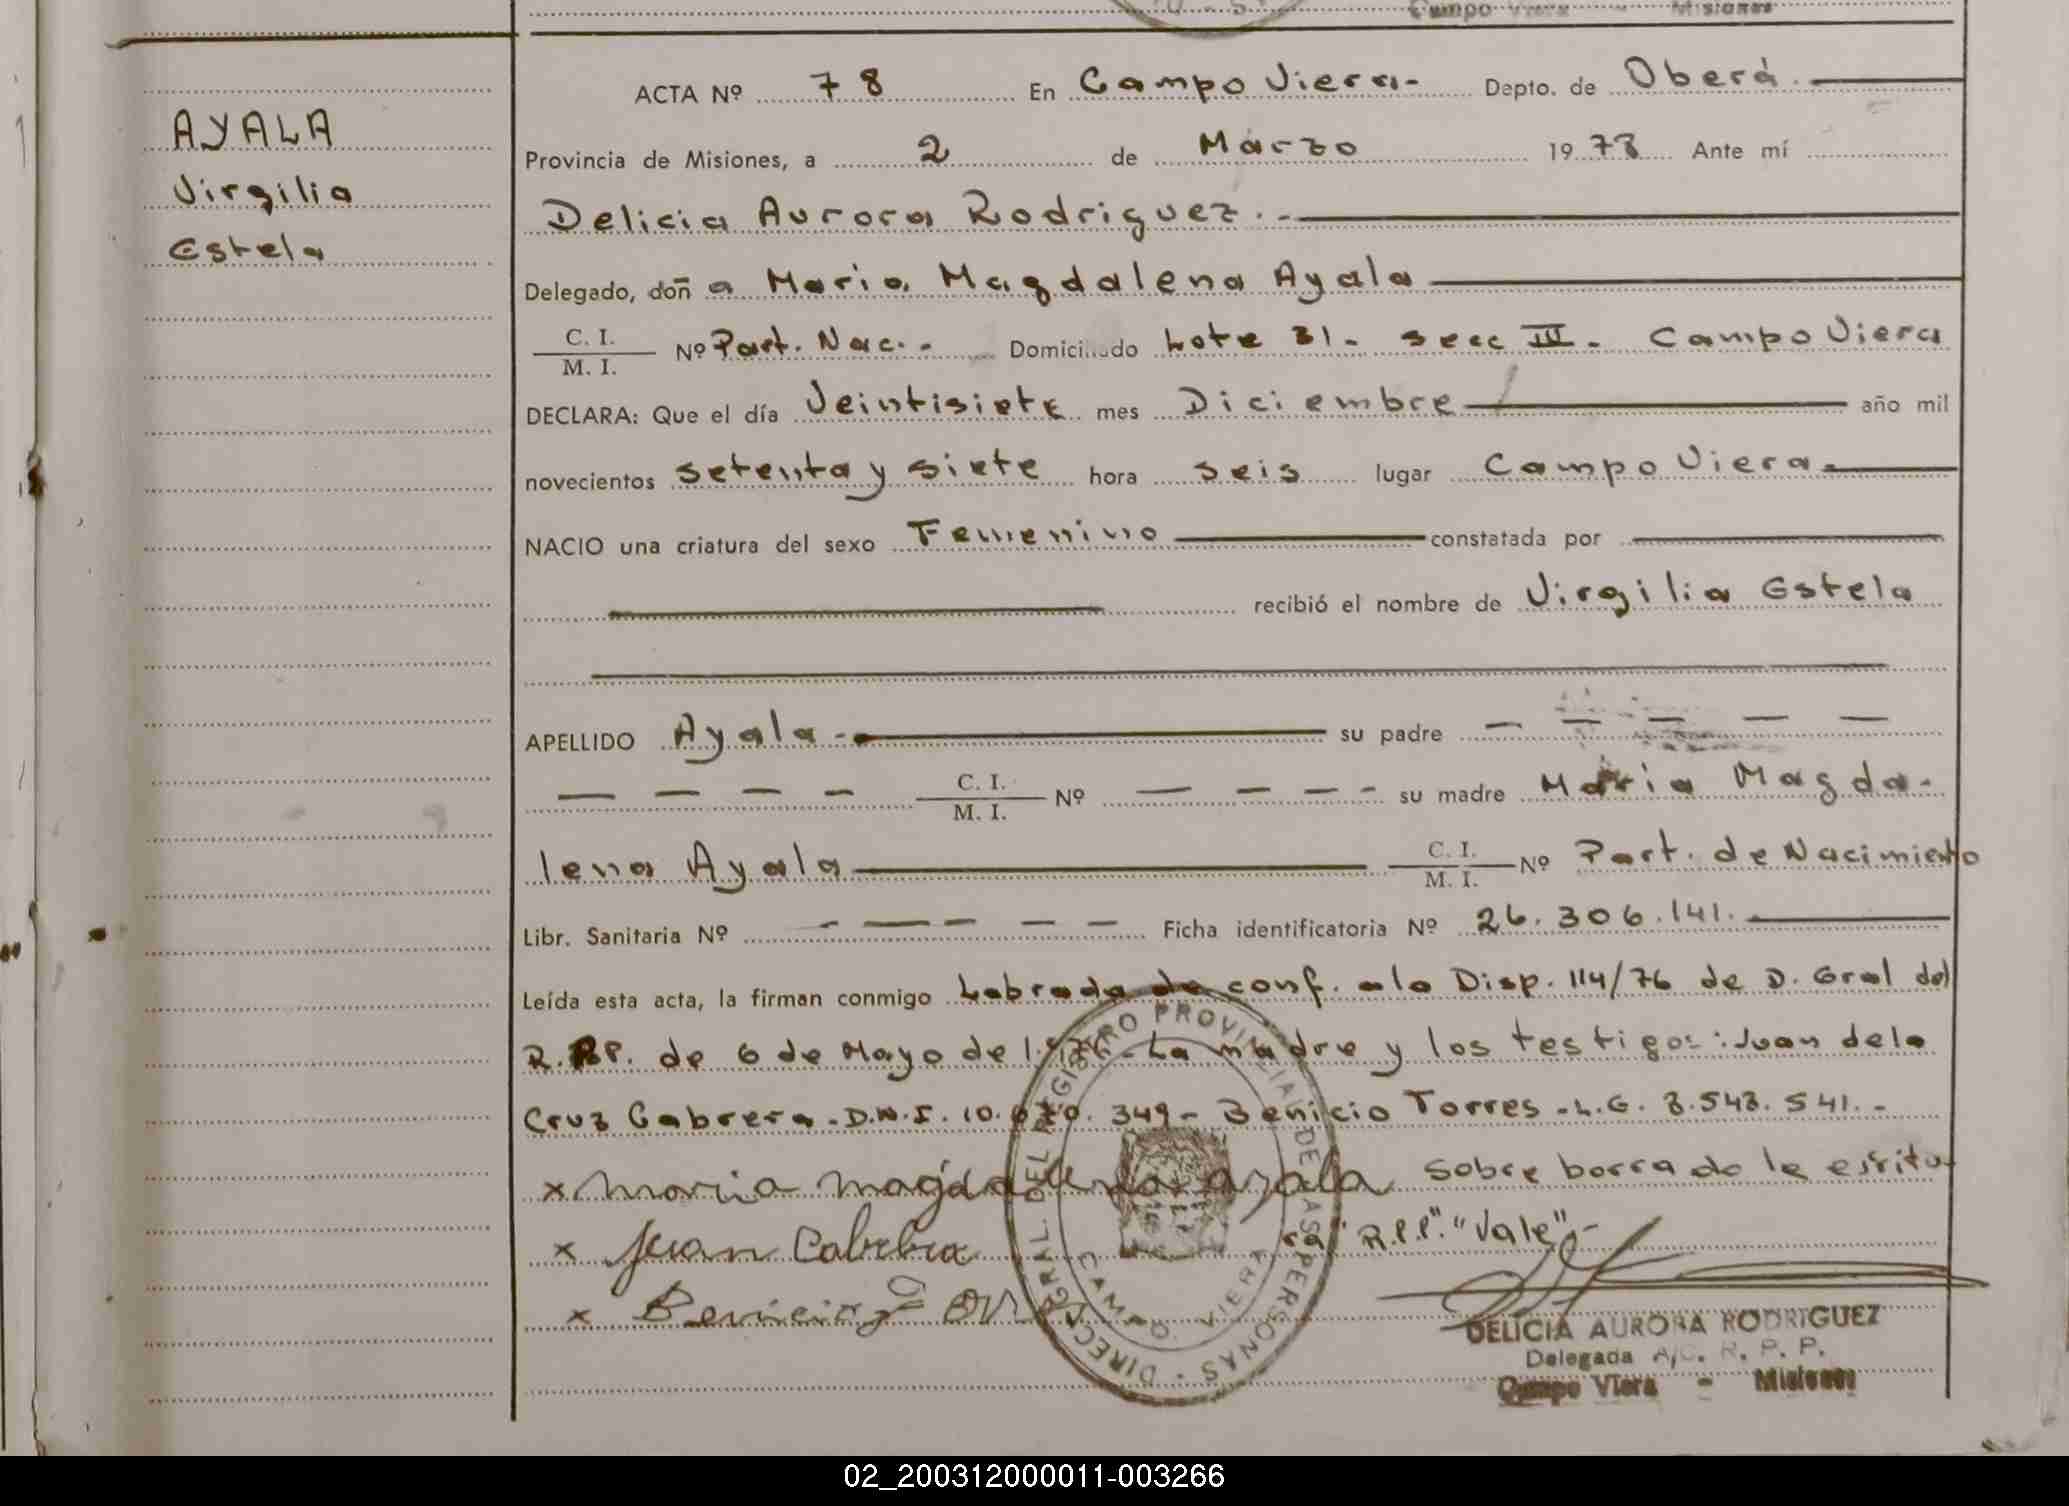 Campo Viera - Misiones
AYALA
Virgilia
Estela
ACTA Nº 78 En Campo Viera- Depto. de Oberá.
Provincia de Misiones, a 2 de Marzo 1978 Ante mí
Delicia Aurora Rodriguez.-
Delegado, doña Maria Magdalena Ayala
C. I.
M. I. Nº Part. Nac.- Domiciliado Lote 31- secc III- Campo Viera
DECLARA: Que el día Veintisiete mes Diciembre año mil
novecientos setenta y siete hora seis lugar Campo Viera-
NACIO una criatura del sexo Femenino constatada por
recibió el nombre de Virgilia Estela
APELLIDO Ayala- su padre - - - - -
- - - - C. I.
M. I. Nº - - - - su madre Maria Magda-
lena Ayala C. I.
M. I. Nº Part. de Nacimiento
Libr. Sanitaria Nº - - - - - Ficha identificatoria Nº 26.306.141.
Leída esta acta, la firman conmigo Labrada de conf. a la Disp. 114/76 de D. Gral del
R.P.P. de 6 de Mayo de 1.976- La madre y los testigos: Juan de la
Cruz Cabrera-D.N.I. 10. 349- Benicio Torres-L.E. 3.543.541.-
x Maria magdalena ayala sobre borrado le escritu
ra "R.P.P." "Vale"-
x Juan Cabrera
x Benicio
DIREC. GRAL. DEL REGISTRO PROVINCIAL DE LAS PERSONAS
CAMPO VIERA
DELICIA AURORA RODRIGUEZ
Delegada A/C. R. P. P.
Campo Viera - Misiones
02_200312000011-003266